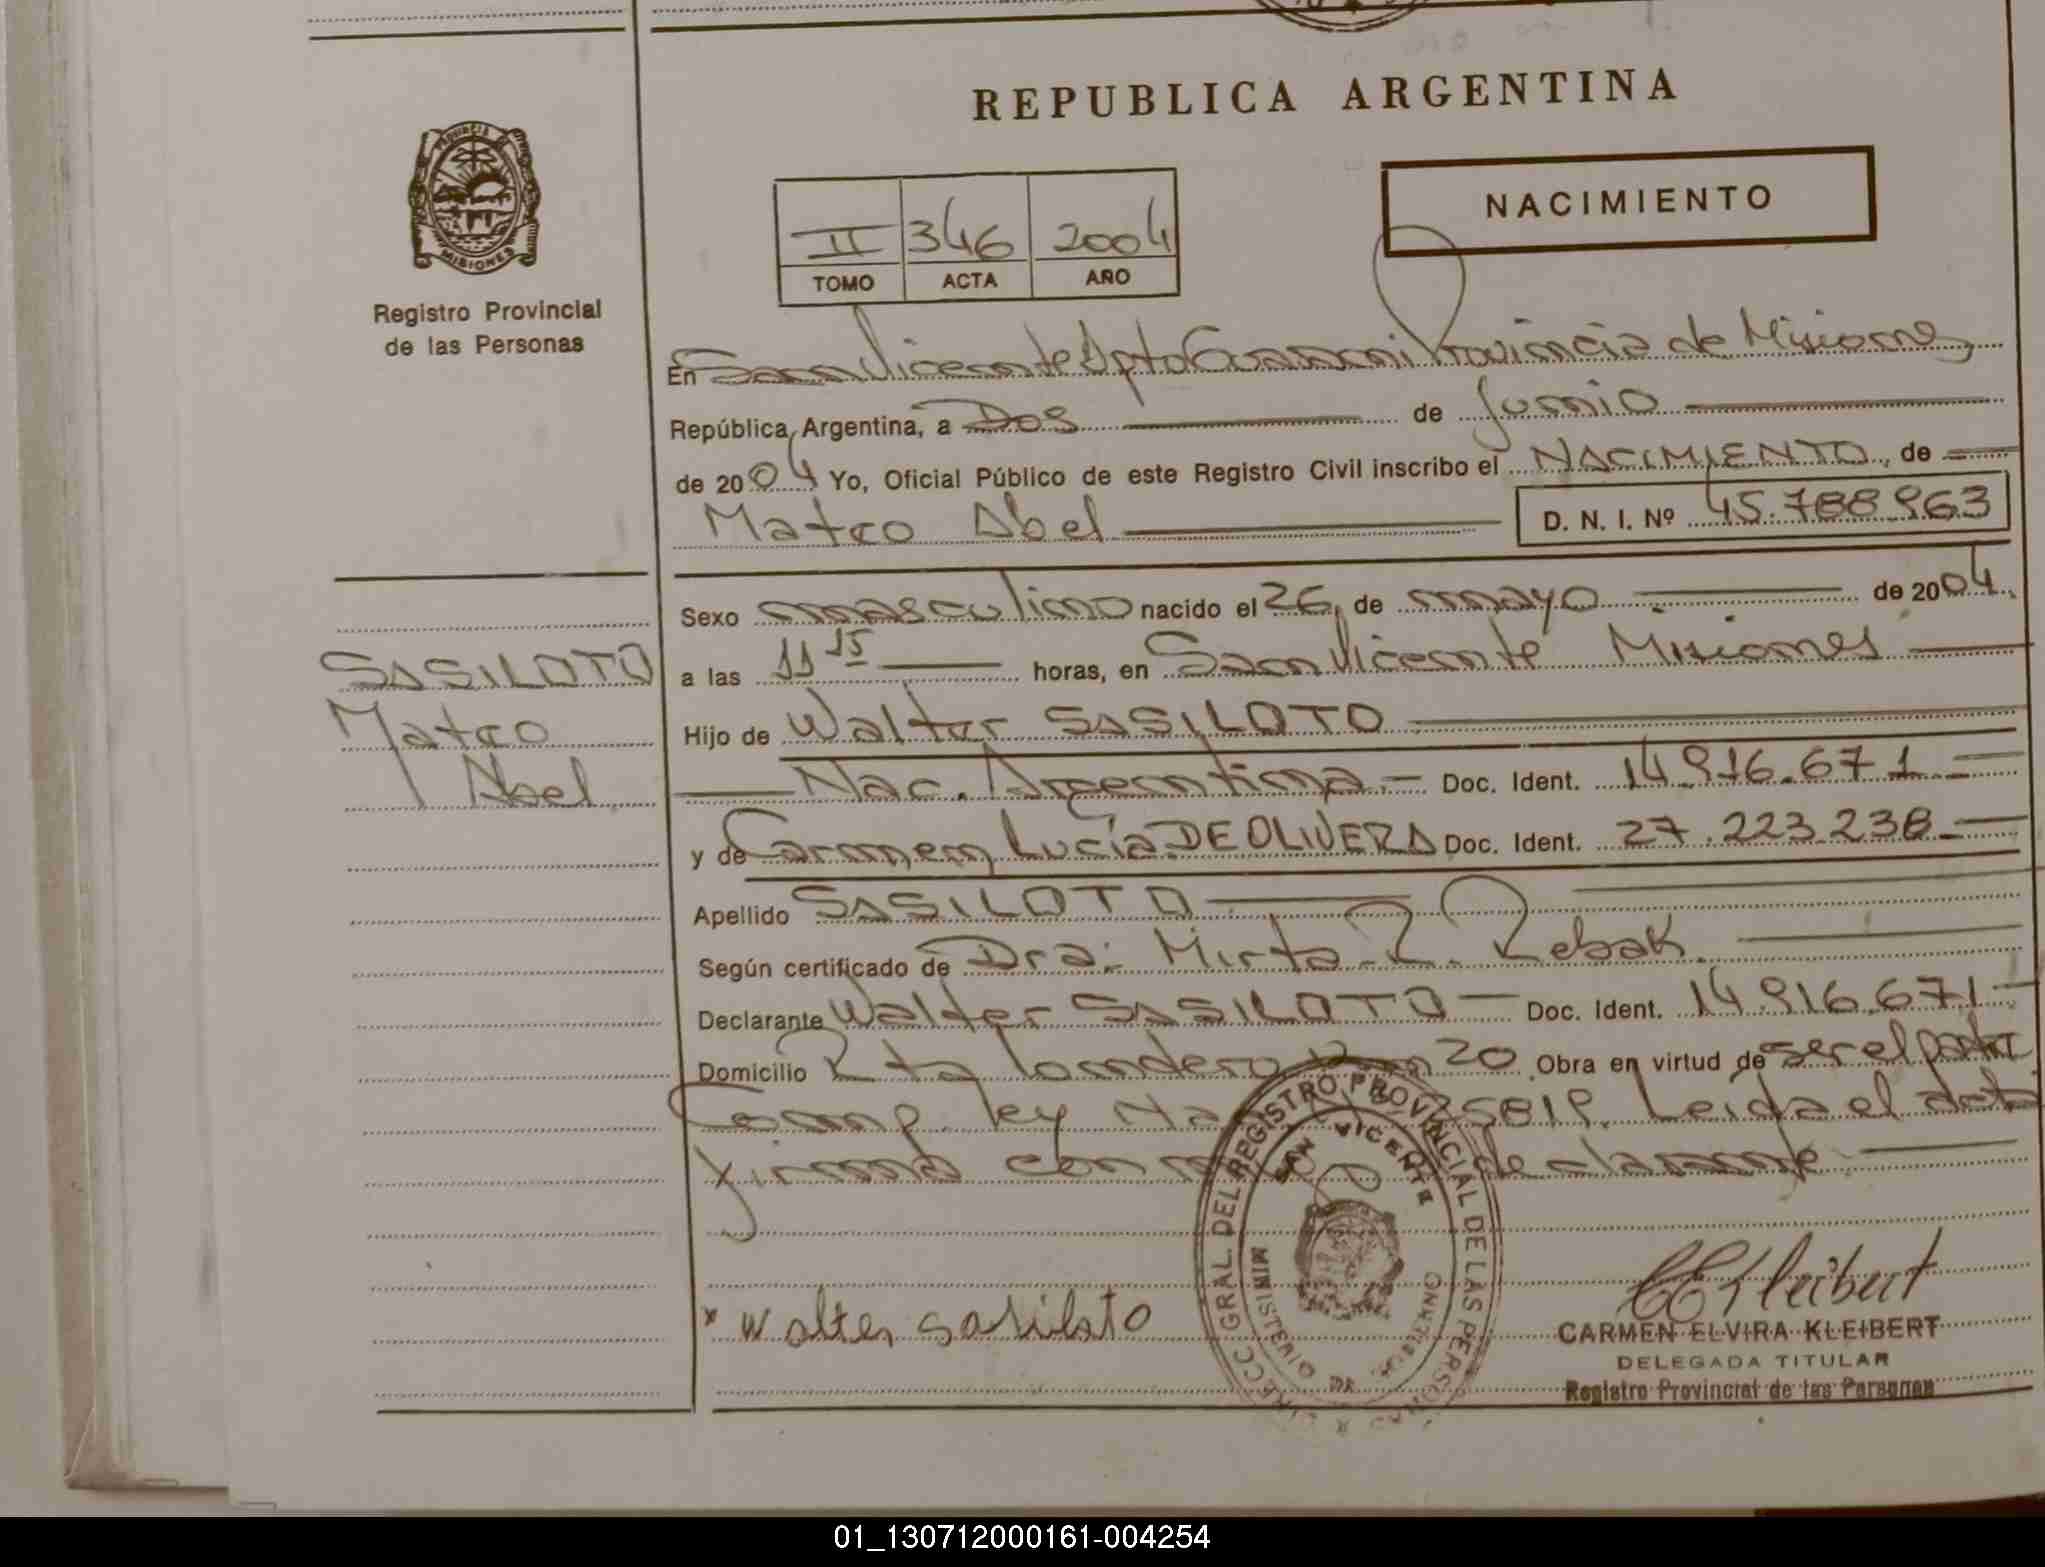 REPUBLICA ARGENTINA
PROVINCIA
MISIONES
Registro Provincial
de las Personas
II 346 2004
TOMO ACTA AÑO
NACIMIENTO
En San Vicente Dpto Guarani Provincia de Misiones
República Argentina, a Dos de Junio
de 2004 Yo, Oficial Público de este Registro Civil inscribo el NACIMIENTO, de
Mateo Abel D. N. I. Nº 45.788.963
Sexo masculino nacido el 26, de mayo de 2004
a las 11 15 horas, en San Vicente Misiones
Hijo de Walter SASILOTO
Nac. Argentina - Doc. Ident. 14.916.671
y de Carmen Lucía DE OLIVERA Doc. Ident. 27.223.238
Apellido SASILOTO
Según certificado de Dra: Mirta R. Rebak.
Declarante Walter SASILOTO Doc. Ident. 14.916.671
Domicilio Rta Km 20 Obra en virtud de ser el padre
Comp. ley Leida el acta
firma declarante.
SASILOTO
Mateo
Abel
DIRECC GRAL. DEL REGISTRO PROVINCIAL DE LAS PERSONAS
SAN VICENTE
MINISTERIO DE
x walter sasiloto
CEKleibert
CARMEN ELVIRA KLEIBERT
DELEGADA TITULAR
Registro Provincial de las Personas
01_130712000161-004254